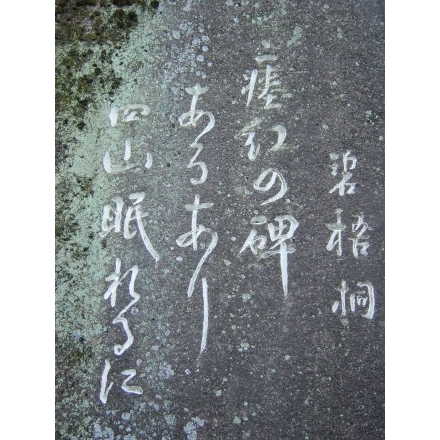 碧梧桐
瘞紅の碑
あるあり
四山眠れるに